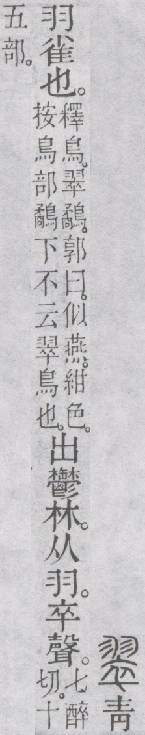 翠青
羽雀也。釋鳥。翠鷸。郭曰。似燕。紺色。按鳥部鷸下不云翠鳥也。出鬱林。从羽。卒聲。七醉切。十
五部。